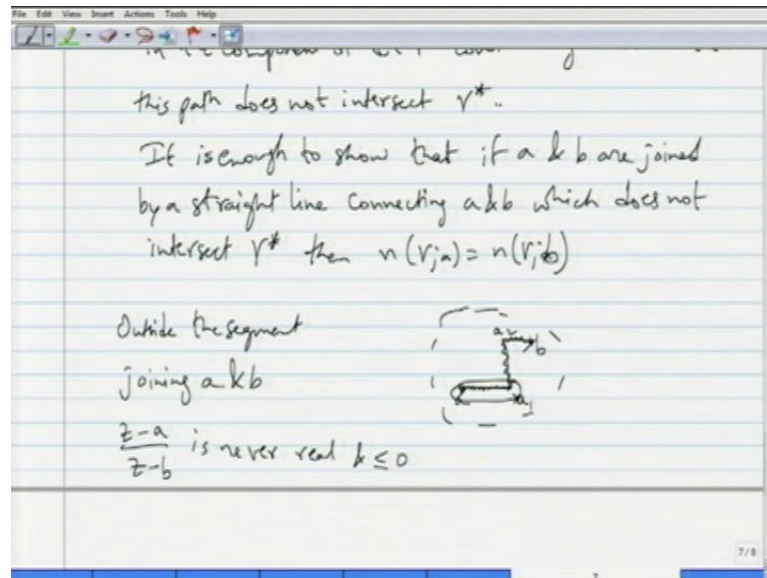 File Edit View Insert Actions Tools Help
this path does not intersect γ*.
It is enough to show that if a & b are joined
by a straight line connecting a & b which does not
intersect γ* then n(γ;a) = n(γ;b)
Outside the segment
joining a & b
a b
a₁
z-a
z-b
is never real & ≤ 0
7/8